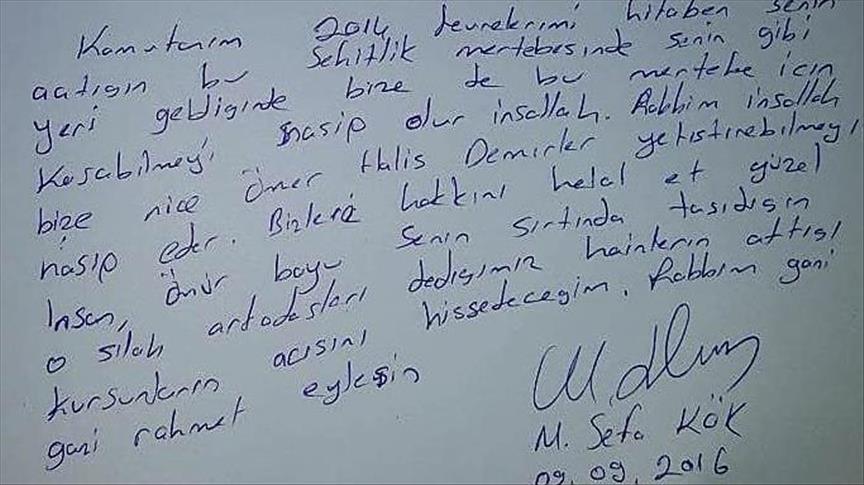 Komutanım 2014 devrelerimi hitaben senin
açtıgın bu Şehitlik mertebesinde senin gibi
yeri geldiginde bize de bu mertebe icin
Kosabilmeyi nasip olur insallah. Rabbim insallah
bize nice Ömer Halis Demirler yetistirebilmeyi
nasip eder. Bizlere hakkını helal et güzel
Insan, Ömür boyu senin sırtında tasıdıgın
o silah arkadasları dedigimiz hainlerin attıgı
kursunların acısını hissedecegim. Rabbim gani
gani rahmet eylesin
M. Sefa KÖK
09.09.2016